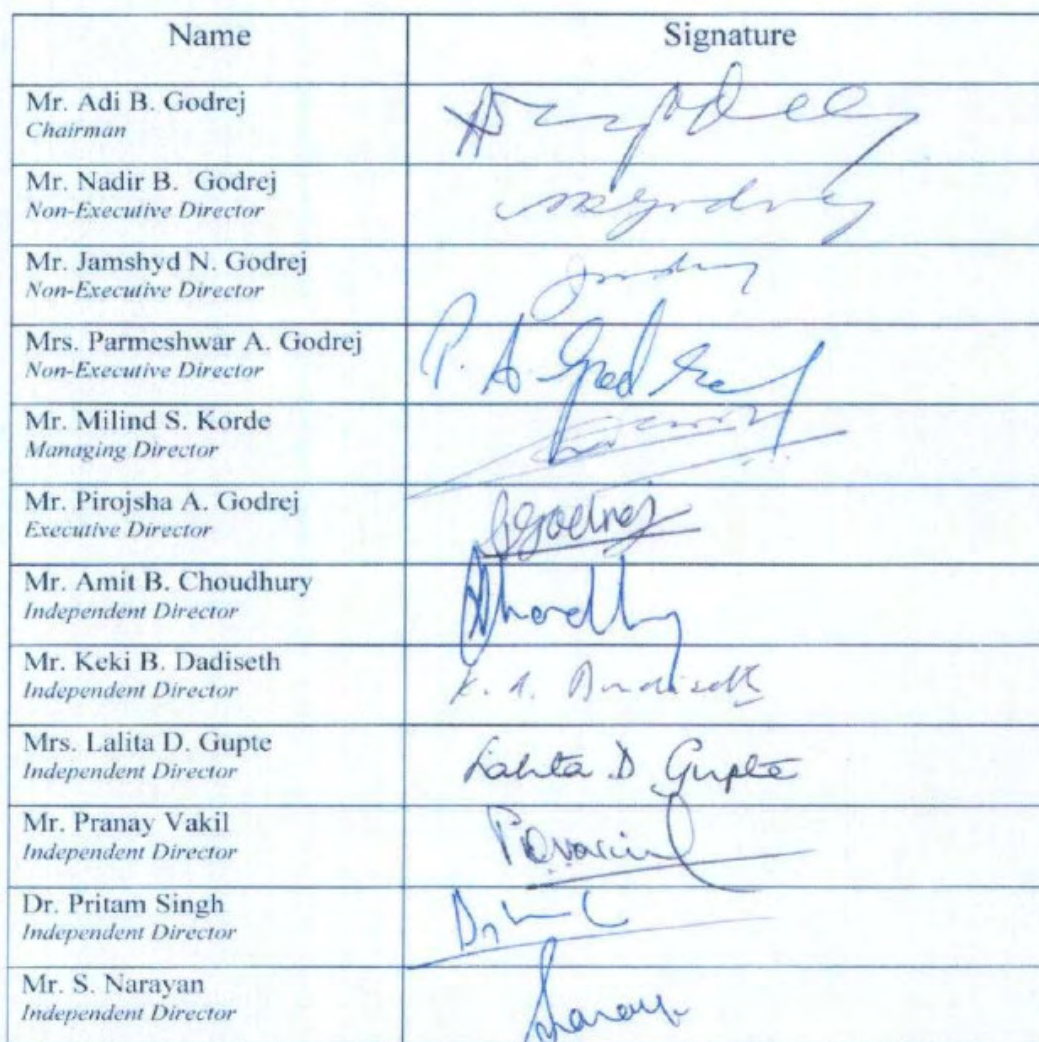 Name Signature
Mr. Adi B. Godrej
Chairman
Mr. Nadir B. Godrej
Non-Executive Director
Mr. Jamshyd N. Godrej
Non-Executive Director
Mrs. Parmeshwar A. Godrej
Non-Executive Director
P. A. Godrej
Mr. Milind S. Korde
Managing Director
Mr. Pirojsha A. Godrej
Executive Director
Mr. Amit B. Choudhury
Independent Director
Mr. Keki B. Dadiseth
Independent Director
Mrs. Lalita D. Gupte
Independent Director
Lalita D Gupte
Mr. Pranay Vakil
Independent Director
Dr. Pritam Singh
Independent Director
Mr. S. Narayan
Independent Director